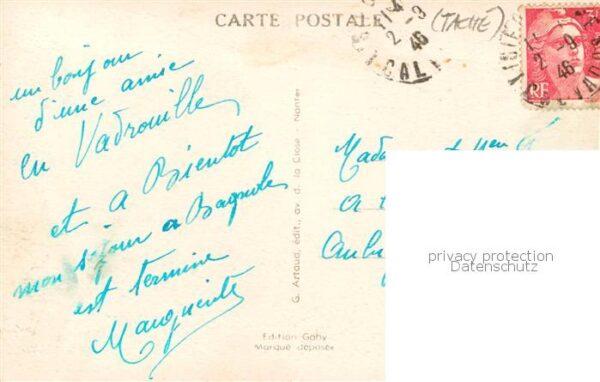 CARTE POSTALE
(TACHÉ)
2-9
46
CAL
2-9
46
RF
un bonjour
d'une amie
en Vadrouille
et a Bientot
mon séjour a Bagnoles
est termine
Marguerite
G. Artaud, édit., av. d. la Close - Nantes
Edition Gaby
Marque déposée
Madame et
a
privacy protection
Datenschutz